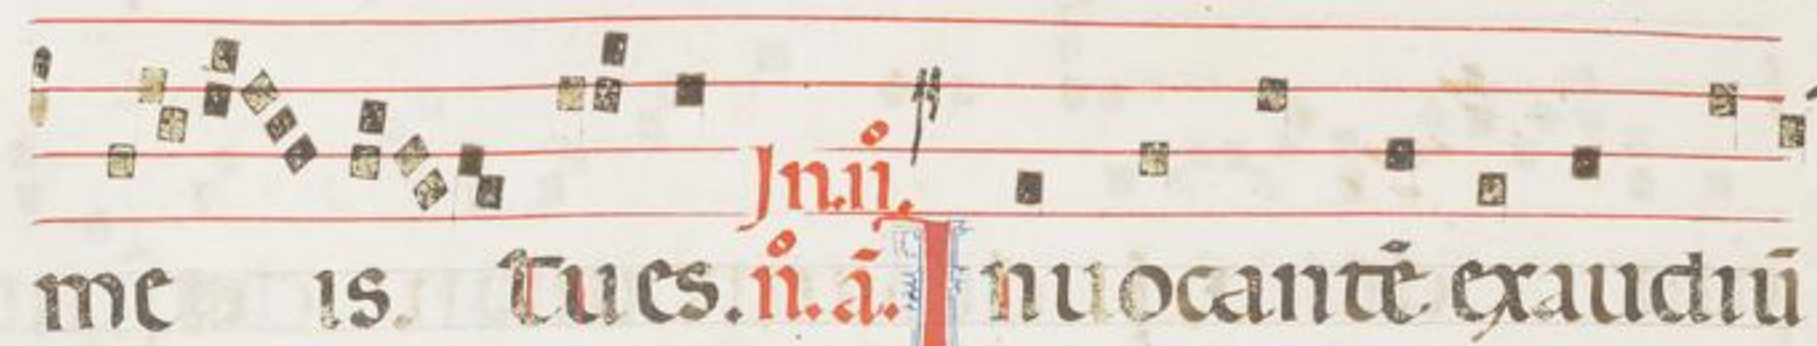 Jn.ij.
me is. Tu es. n̊. ā. Inuocantē exaudiū